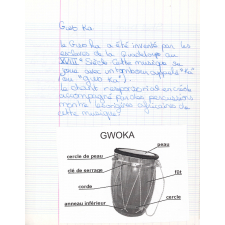 Gwo Ka
Le Gwo Ka a été inventé par les
esclaves de la Guadeloupe au
XVIII° Siècle. Cette musique se
joue avec un tambour appelé "Ka"
ou "Gwo Ka".
Le chant responsorial en créole
accompagné par des percussions
montre les origines africaines de
cette musique.
GWOKA
peau
cercle de peau
clé de serrage
fût
corde
cercle
anneau inférieur